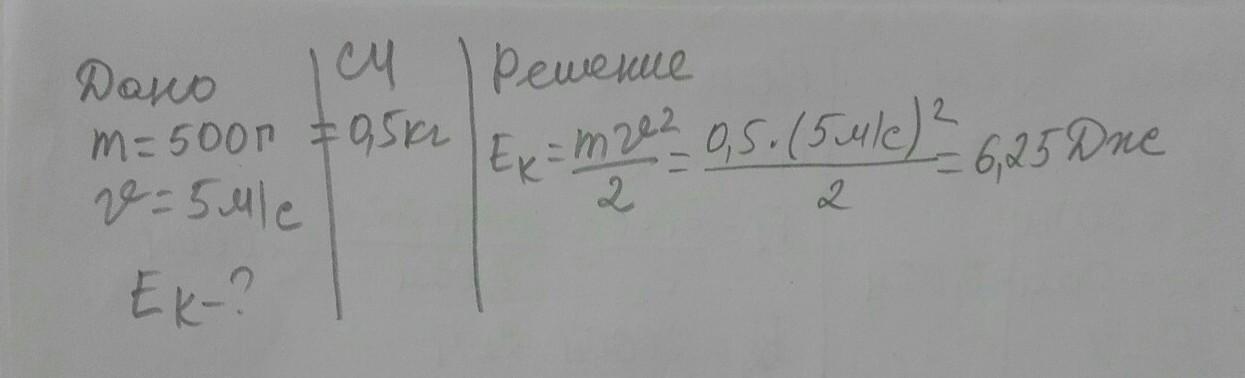 Дано
m = 500г
v = 5 м/с
Eк - ?
СИ
= 0,5 кг
Решение
Eк = mv²/2 = 0,5 · (5 м/с)²/2 = 6,25 Дж